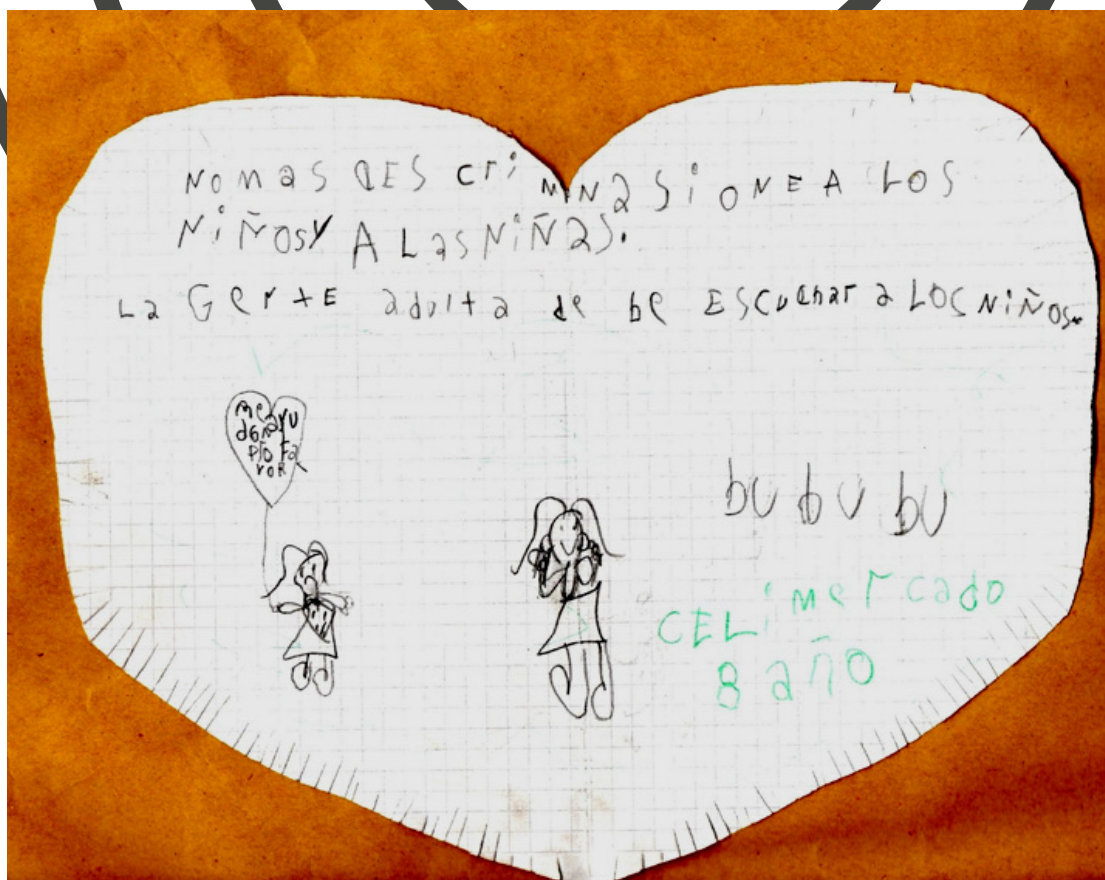 NO mas DES criMiNasioNE A LOS
NiÑOSY A LasNiÑas.
La GeNtE adulta de be ESCUChar a LOS NiÑos.
me
da
ayu
por Fa
voR
bU bU bU
CELi mercado
8 año